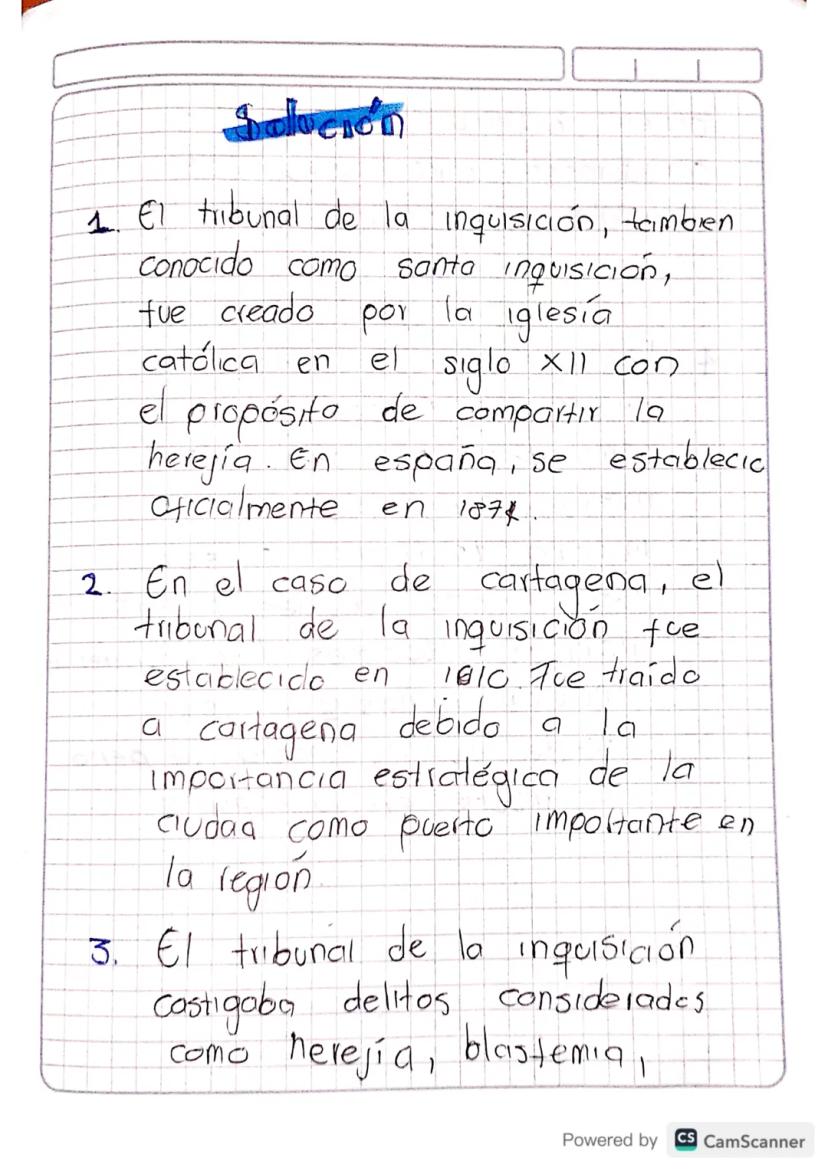 Solución
1. El tribunal de la inquisición, tambien
conocido como santa inquisición,
fue creado por la iglesía
católica en el siglo XII con
el propósito de compartir la
herejía. En españa, se establecio
oficialmente en
2. En el caso de cartagena, el
tribunal de la inquisición fue
establecido en 1610. Fue traído
a cartagena debido a la
importancia estratégica de la
ciudad como puerto importante en
la región
3. El tribunal de la inquisición
castigaba delitos considerados
como herejía, blasfemia,
Powered by CS CamScanner